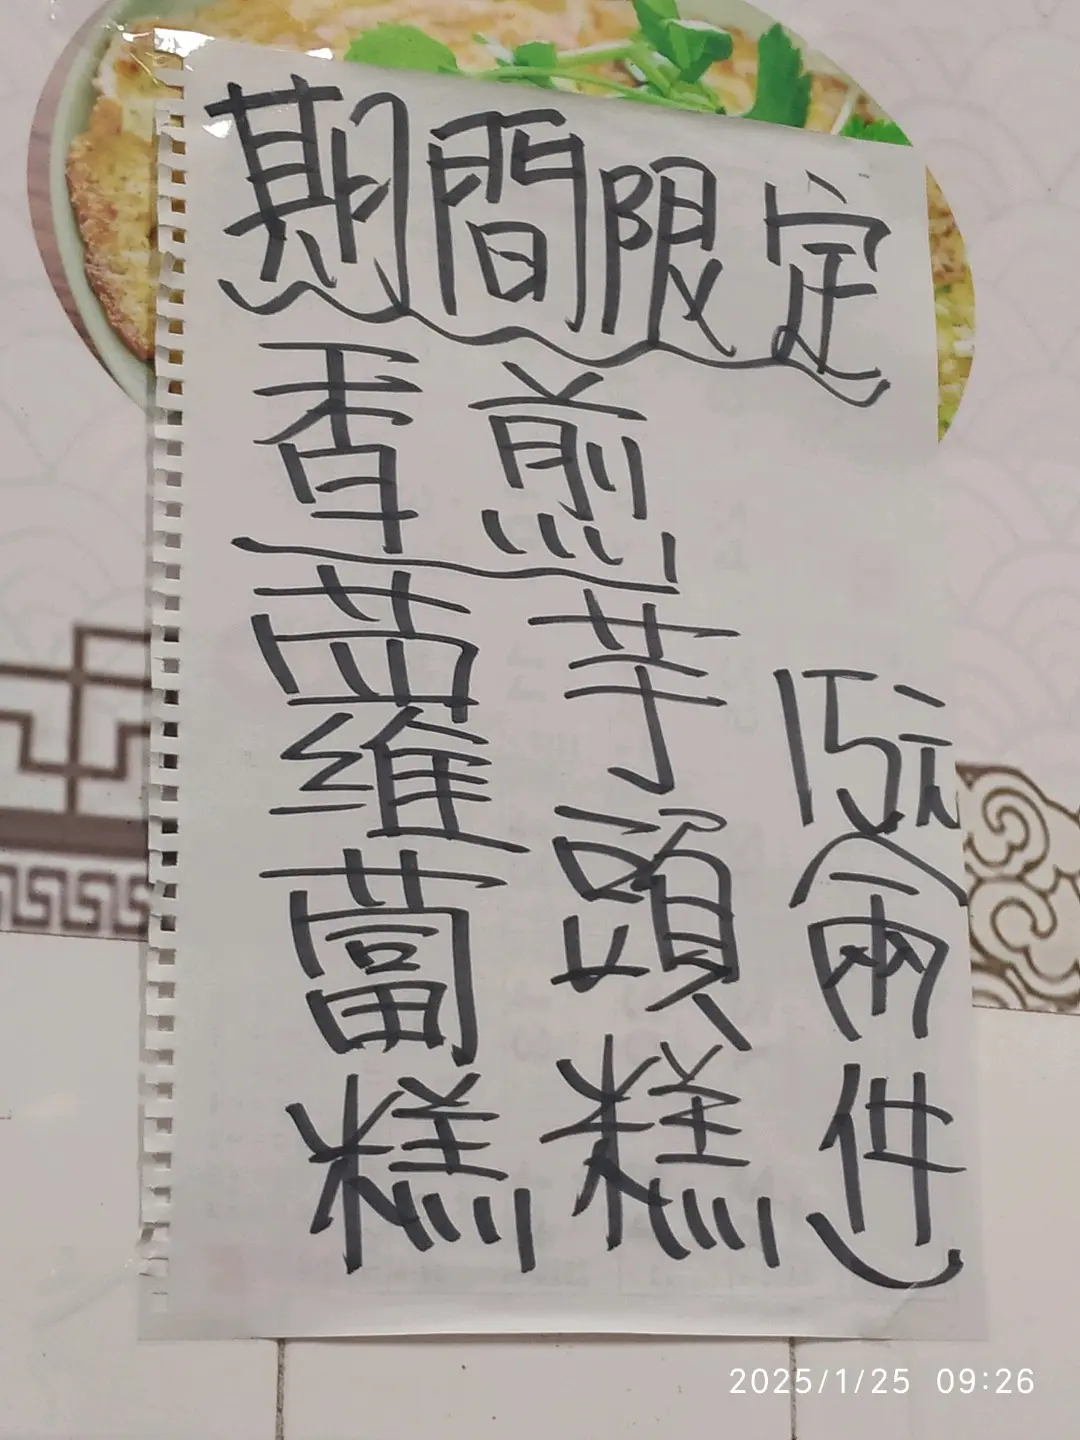 期間限定
香煎
蘿蔔糕
芋頭糕
15元
(兩件)
2025/1/25 09:26